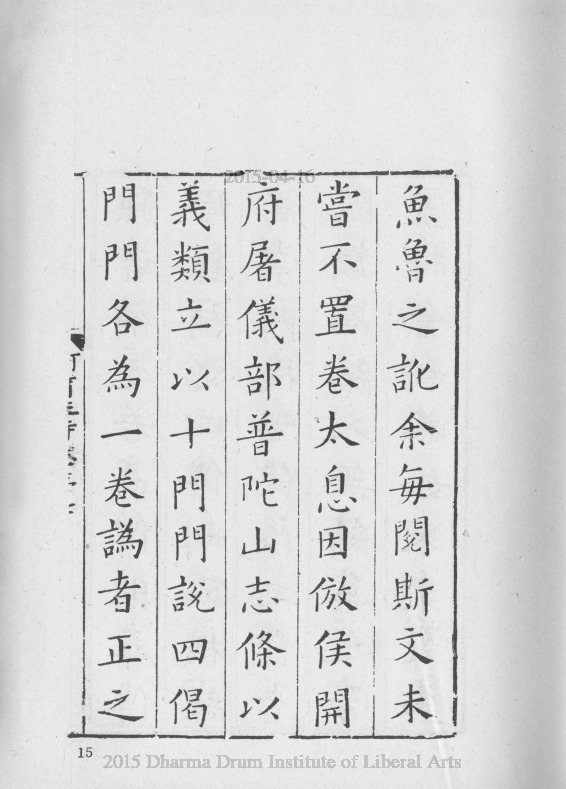 2015-04-16
魚魯之訛余每閱斯文未
嘗不置卷太息因倣侯開
府屠儀部普陀山志條以
義類立以十門門說四偈
門門各為一卷譌者正之
15
2015 Dharma Drum Institute of Liberal Arts